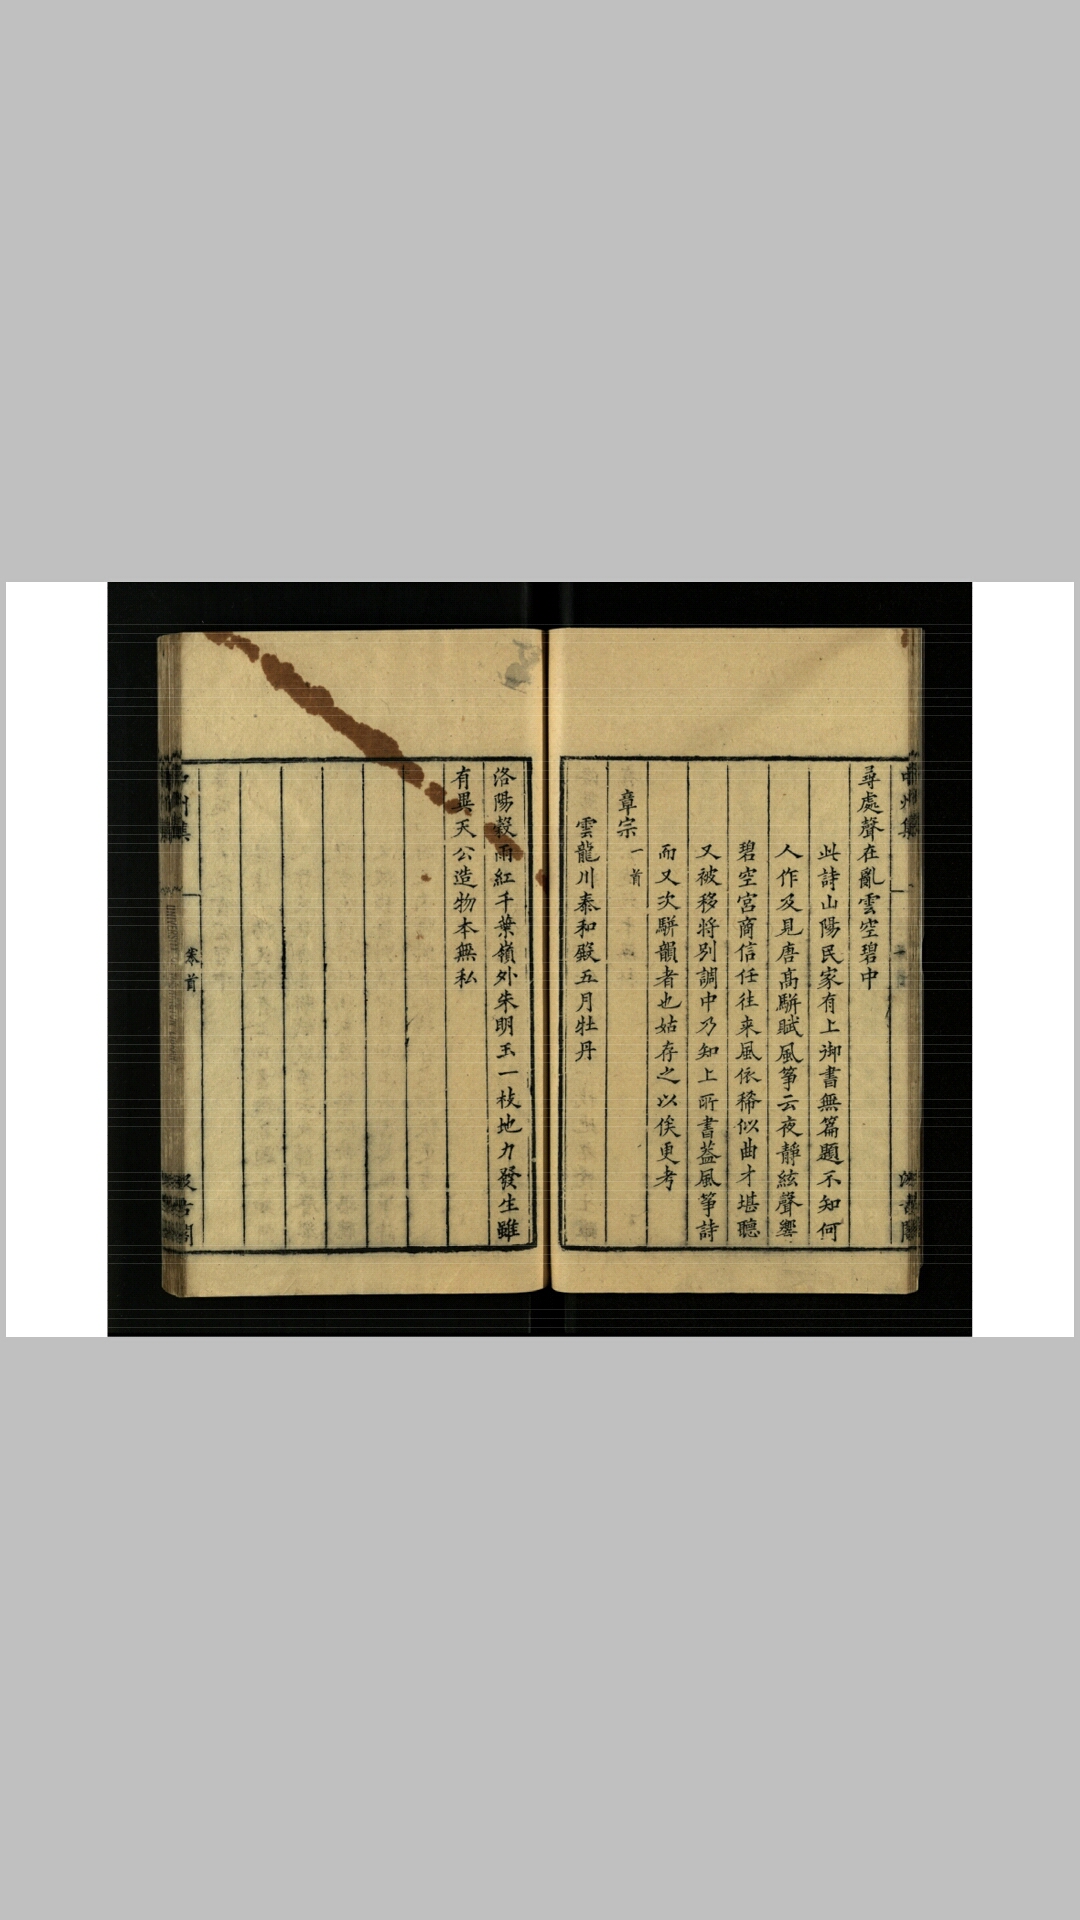 尋處聲在亂雲空碧中
此詩山陽民家有上御書無篇題不知何
人作及見唐髙駢賦風箏云夜靜絃聲響
碧空宮商信任往來風依稀似曲才堪聽
又被移將别調中乃知上所書葢風箏詩
而又次駢韻者也姑存之以俟更考
章宗一首
雲龍川泰和殿五月牡丹
洛陽穀雨紅千葉嶺外朱明玉一枝地力發生雖
有異天公造物本無私
卷首